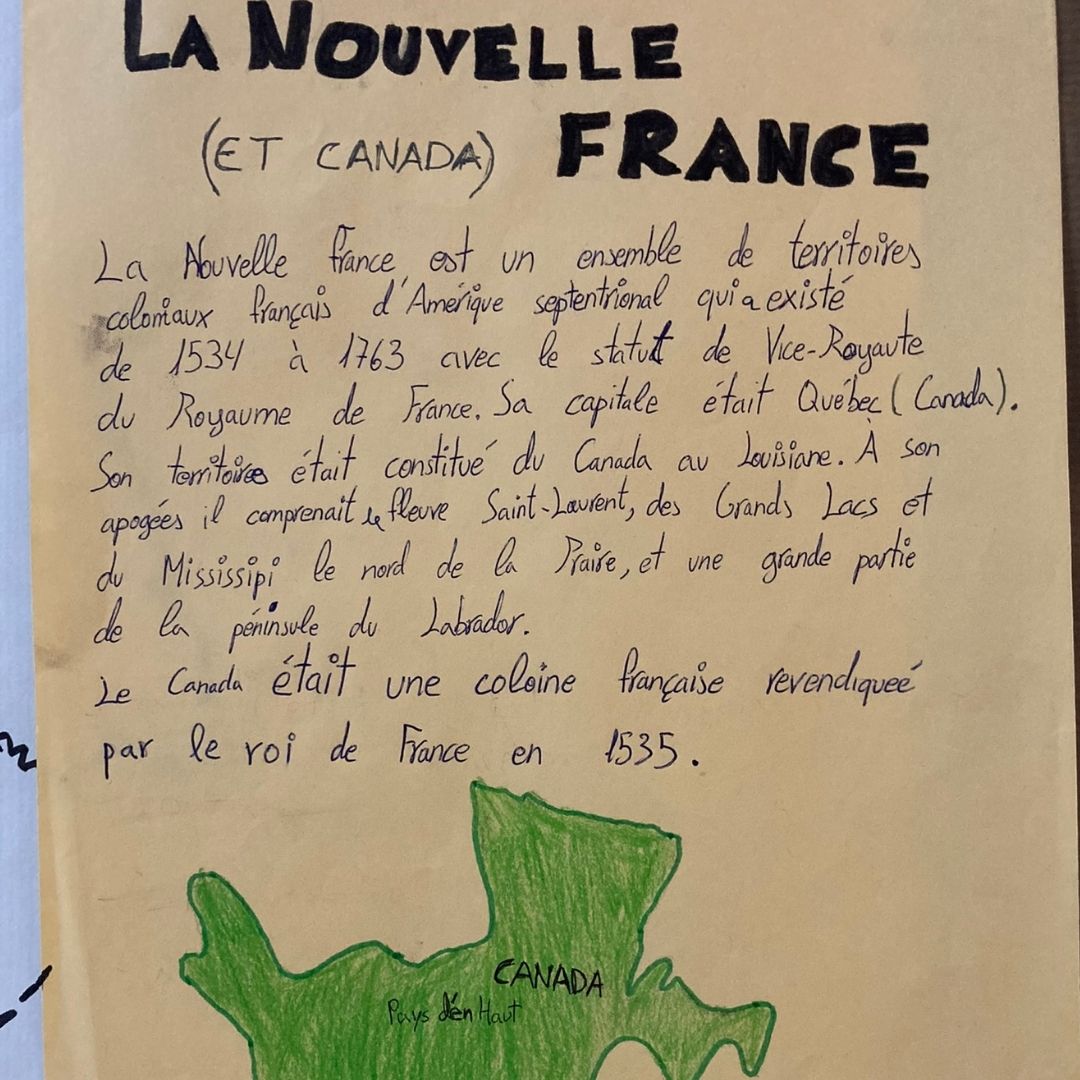 LA NOUVELLE
(ET CANADA) FRANCE
La Nouvelle france est un ensemble de territoires
coloniaux français d'Amérique septentrional qui a existé
de 1534 à 1763 avec le statut de Vice-Royaute
du Royaume de France. Sa capitale était Québec (Canada).
Son territoires était constitué du Canada au Louisiane. À son
apogées il comprenait le fleuve Saint-Laurent, des Grands Lacs et
du Mississipi le nord de la Praire, et une grande partie
de la péninsule du Labrador.
Le Canada était une coloine française revendiqueé
par le roi de France en 1535.
CANADA
Pays d'én Haut